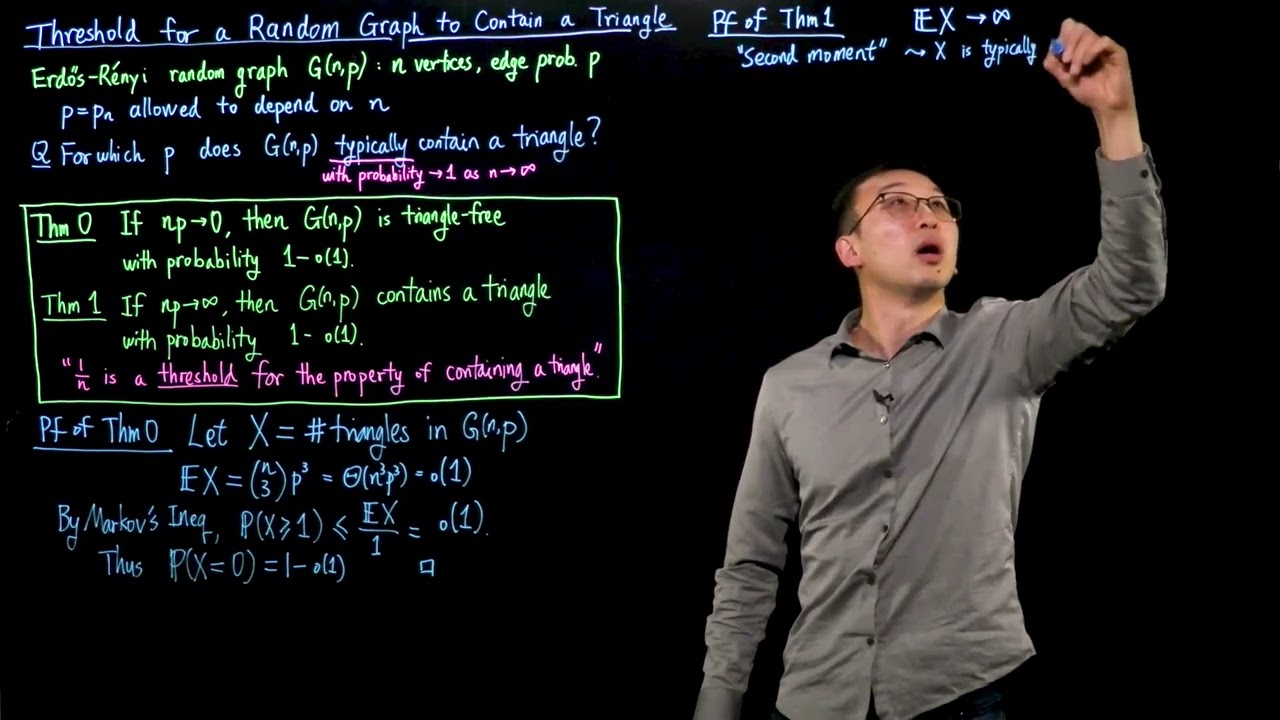 Threshold for a Random Graph to Contain a Triangle
Erdős-Rényi random graph G(n,p): n vertices, edge prob. p
p=pₙ allowed to depend on n
Q For which p does G(n,p) typically contain a triangle?
with probability →1 as n→∞
Thm 0 If np→0, then G(n,p) is triangle-free
with probability 1-o(1).
Thm 1 If np→∞, then G(n,p) contains a triangle
with probability 1-o(1).
"1/n is a threshold for the property of containing a triangle."
Pf of Thm 0 Let X = # triangles in G(n,p)
𝔼X = (n 3) p³ = Θ(n³p³) = o(1)
By Markov's Ineq, ℙ(X≥1) ≤ 𝔼X/1 = o(1).
Thus ℙ(X=0) = 1-o(1) □
Pf of Thm 1 𝔼X → ∞
"Second moment" ⇝ X is typically